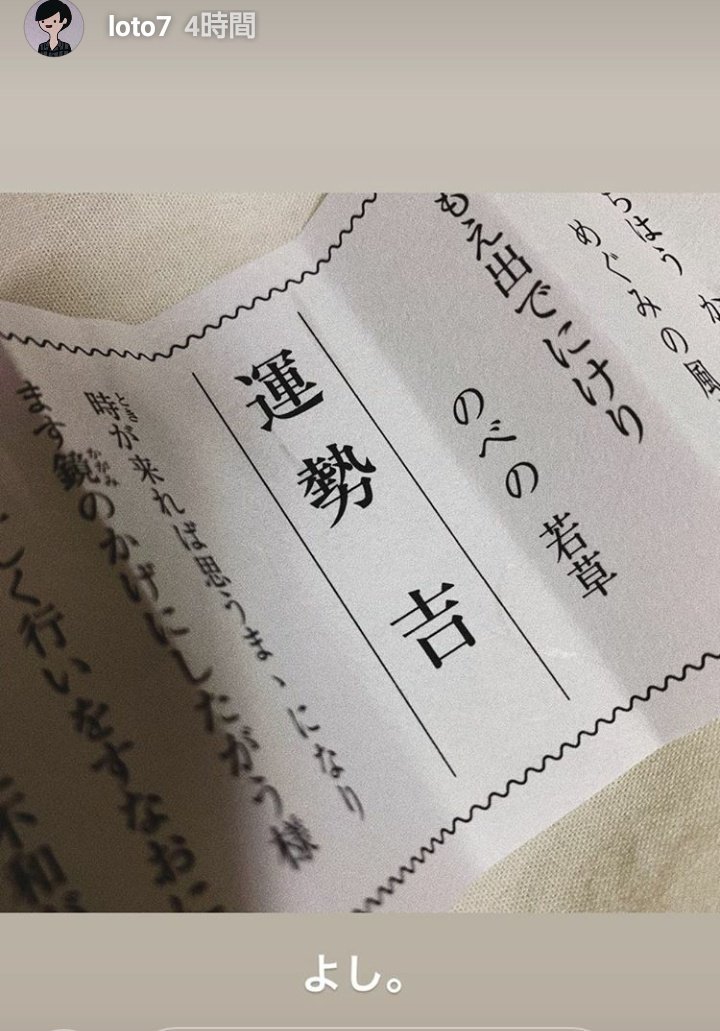 loto7 4時間
めぐみの風
もえ出でにけり
のべの 若草
運勢 吉
時が来れば思うまゝになり
ときが
ます鏡のかげにしたがう様
かがみ
しく行いをすなおに
不和が
よし。